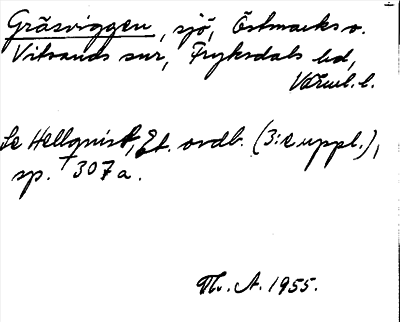 Gräsviggen, sjö, Östmarks o.
Vitsands snr, Fryksdals hd,
Värml. l.
Se Hellquist, Et. ordb. (3:e uppl.),
sp. 307a.
Th. A. 1955.